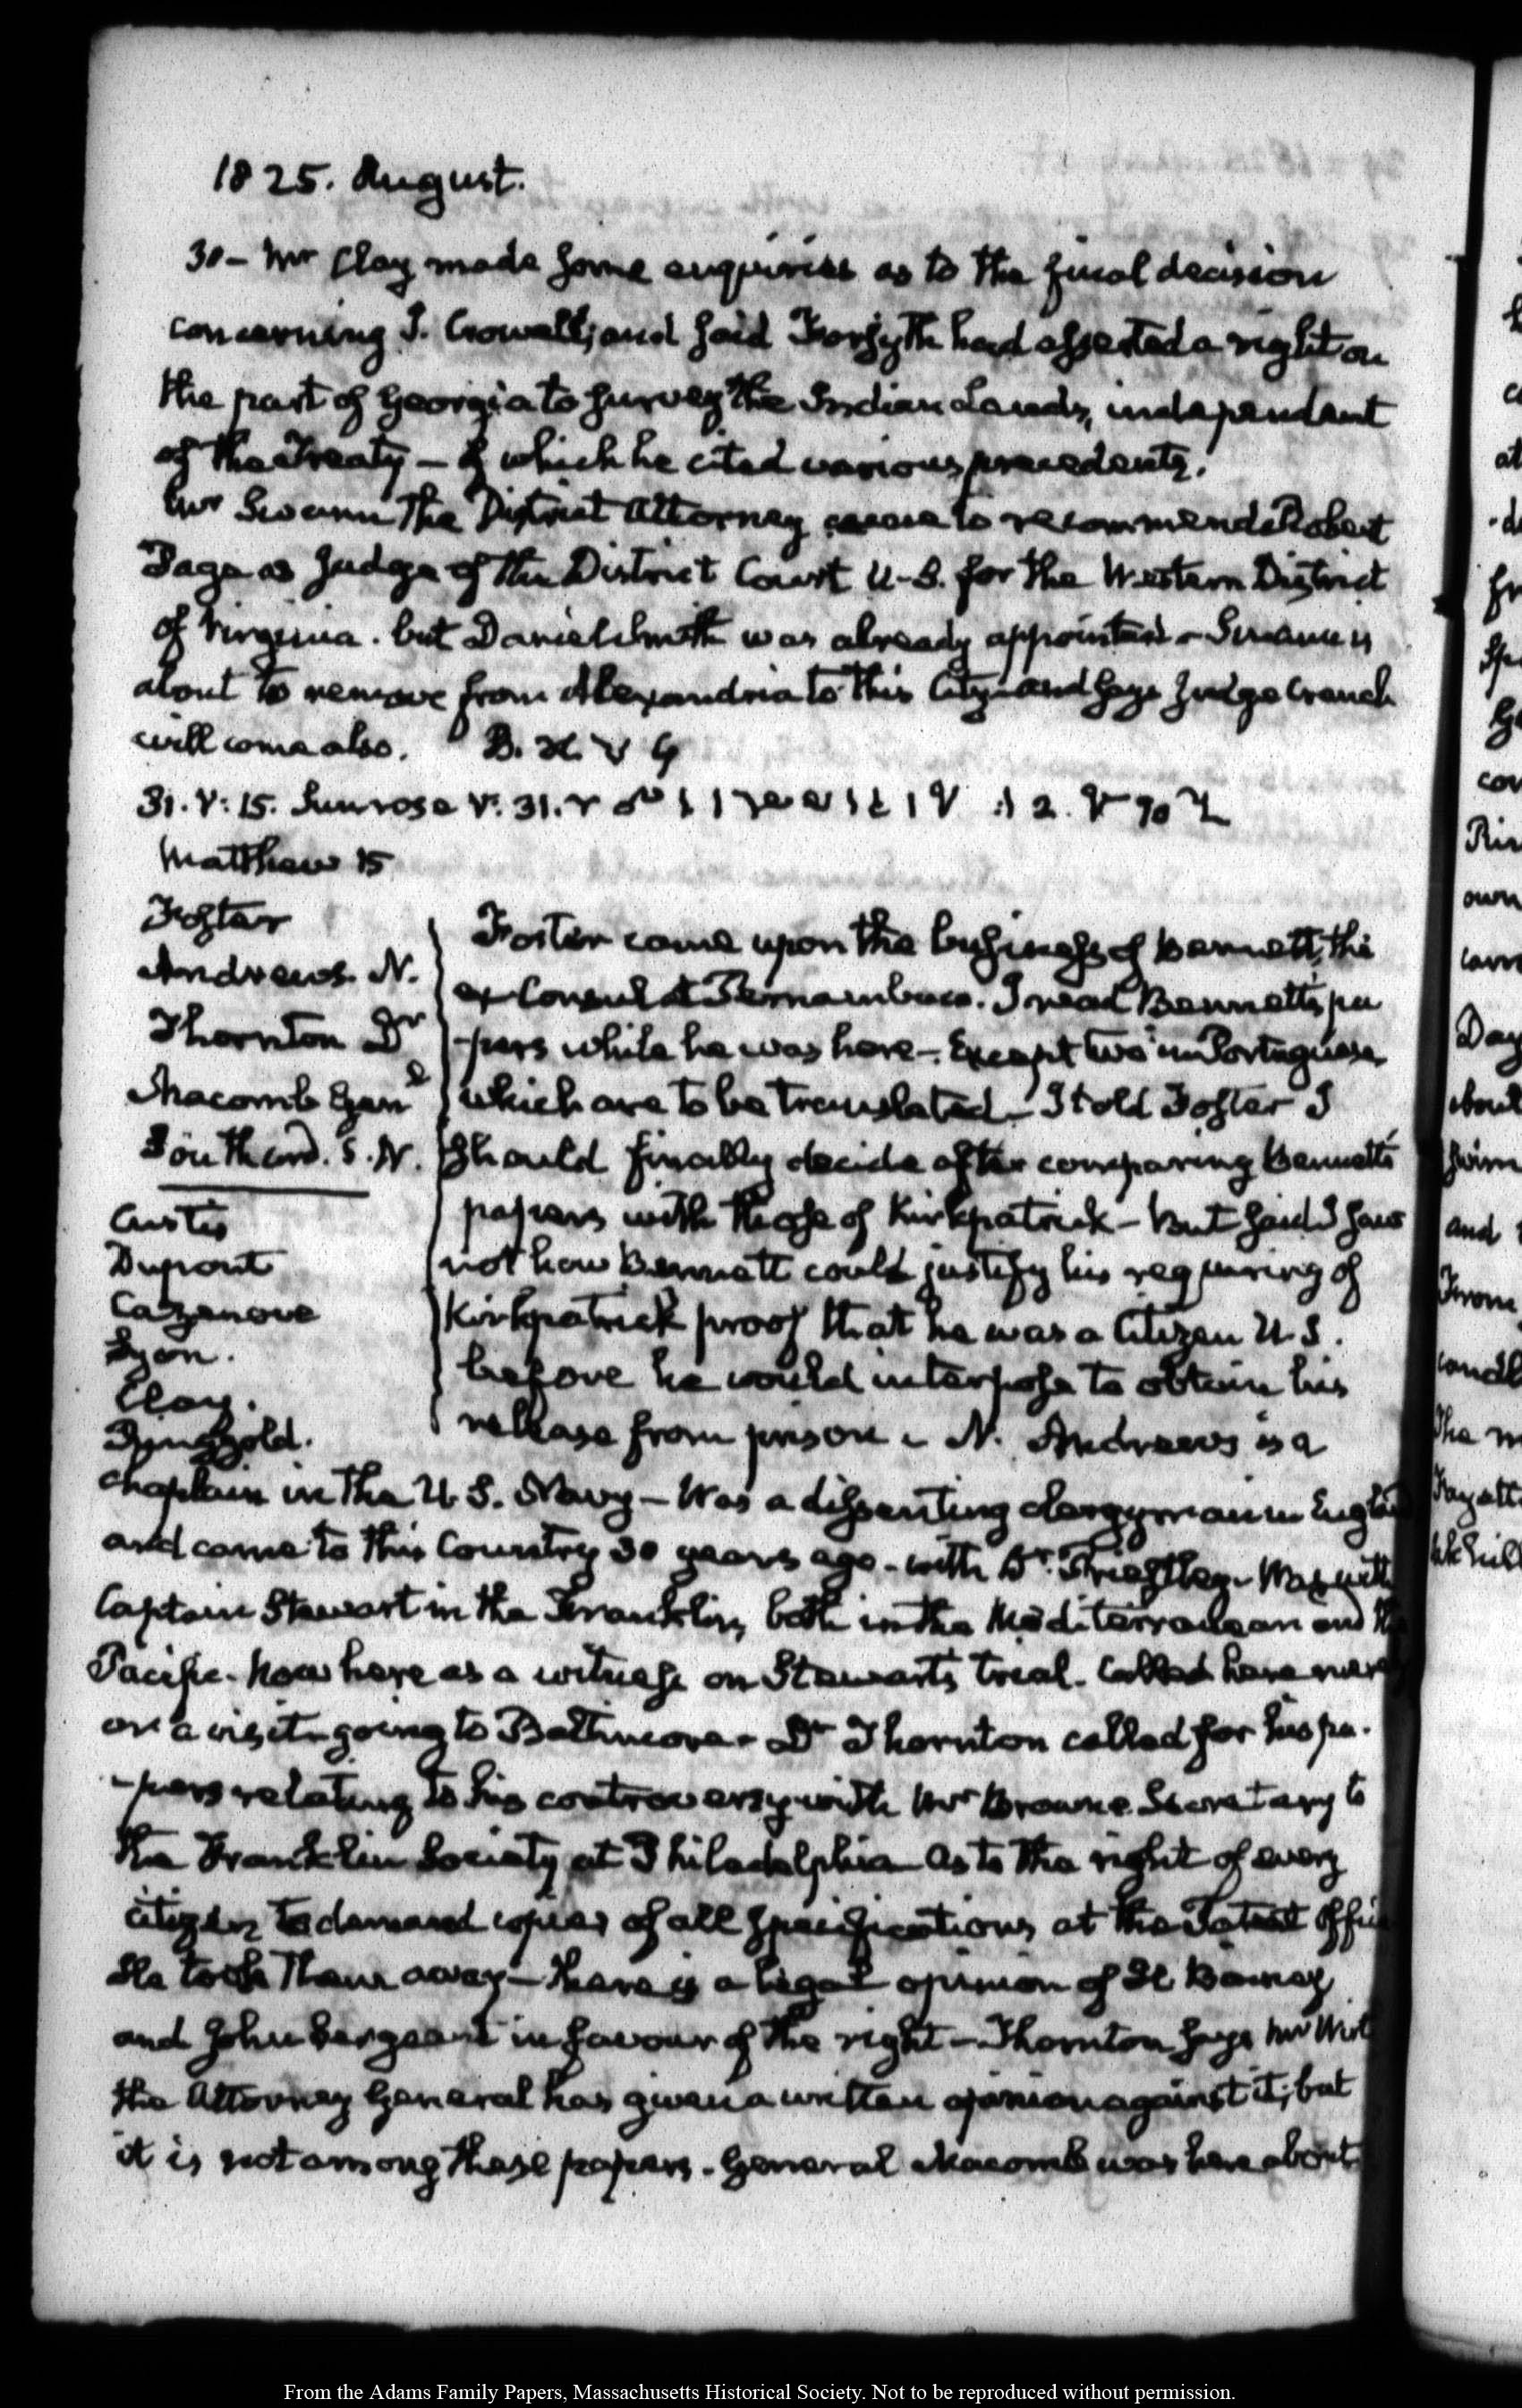 1825. August.
30 – Mr Clay made some enquiries as to the final decision
concerning J. Crowell; and said Forsyth had asserted a right on
the part of Georgia to survey the Indian Lands, independent
of the Treaty – of which he cited various precedents.
Mr Swann the District Attorney came to recommend Robert
Page as Judge of the District Court U.S. for the Western District
of Virginia. but Daniel Smith was already appointed – Swann is
about to remove from Alexandria to this City and says Judge Cranch
will come also.
31. V: 15. Sun rose V. 31.
Matthew 15
Foster
Andrews. N.
Thornton Dr
Macomb Genl
Southard. S. N.
Custis
Dupont
Cazenove
Lyon.
Clay.
Ringgold.
Foster came upon the business of Bennett, the
ex Consul at Pernambuco. I read Bennett's pa
-pers while he was here – Except two in Portuguese
which are to be translated – I told Foster I
should finally decide after comparing Bennett's
papers with those of Kirkpatrick – But said I saw
not how Bennett could justify his requiring of
Kirkpatrick proof that he was a Citizen U.S.
before he would interpose to obtain his
release from prison – N. Andrews is a
Chaplain in the U.S. Navy – Was a dissenting clergyman in England
and came to this Country 30 years ago – with Dr. Priestley – Was with
Captain Stewart in the Franklin, both in the Mediterranean and the
Pacific – Now here as a witness on Stewart's trial. Called here merely
on a visit – going to Baltimore – Dr Thornton called for his pa-
-pers relating to his controversy with Mr Browne Secretary to
the Franklin Society at Philadelphia as to the right of every
citizen to demand copies of all specifications at the Patent Office
He took them away – there is a legal opinion of H Binney
and John Sergeant in favour of the right – Thornton says Mr Wirt
the Attorney General has given a written opinion against it; but
it is not among these papers. General Macomb was here about
From the Adams Family Papers, Massachusetts Historical Society. Not to be reproduced without permission.